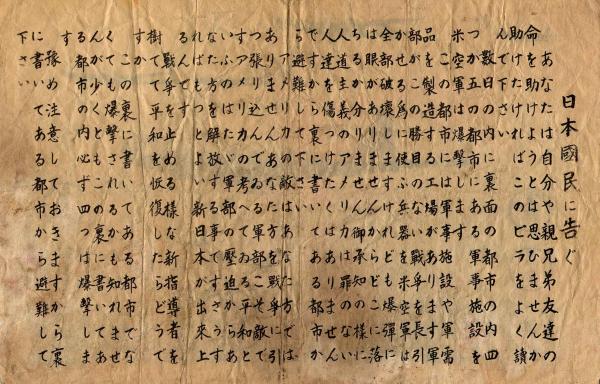 日本國民に告ぐ
あなたは自分や親兄弟友達の
命を助けようとは思ひませんか
助けたければこのビラをよく讀
んで下さい
数日の内に裏面の都市の内四
つか五つの都市にある軍事施設を
米空軍は爆撃します
この都市には軍事施設や軍需
品を製造する工場があります軍
部がこの勝目のない戦争を長引
かせる為に使ふ兵器を米空軍は
全部破壊しますけれども爆弾に
は眼がありませんからどこに落
ちるか分りません御承知の様に
人道主義のアメリカは罪のない
人達を傷つけたくはありませ
んですから裏に書いてある都市か
ら避難して下さい
アメリカの敵はあなた方では
ありませんあなた方を戦争に引
っ張り込んでゐる軍部こそ敵で
すアメリカの考へてゐる平和と
いふのはたゞ軍部の壓迫からあ
なた方を解放する事ですさうす
ればもつとよい新日本が出來上
るんです
戦争を止める様な新指導者を
樹てて平和を恢復したらどうで
すか
この裏に書いてある都市でな
くても爆撃されるかも知れませ
んが少くともこの裏に書いてあ
る都市の内必ず四つは爆撃しま
す
豫め注意しておきますから裏
に書いてある都市から避難して
下さい